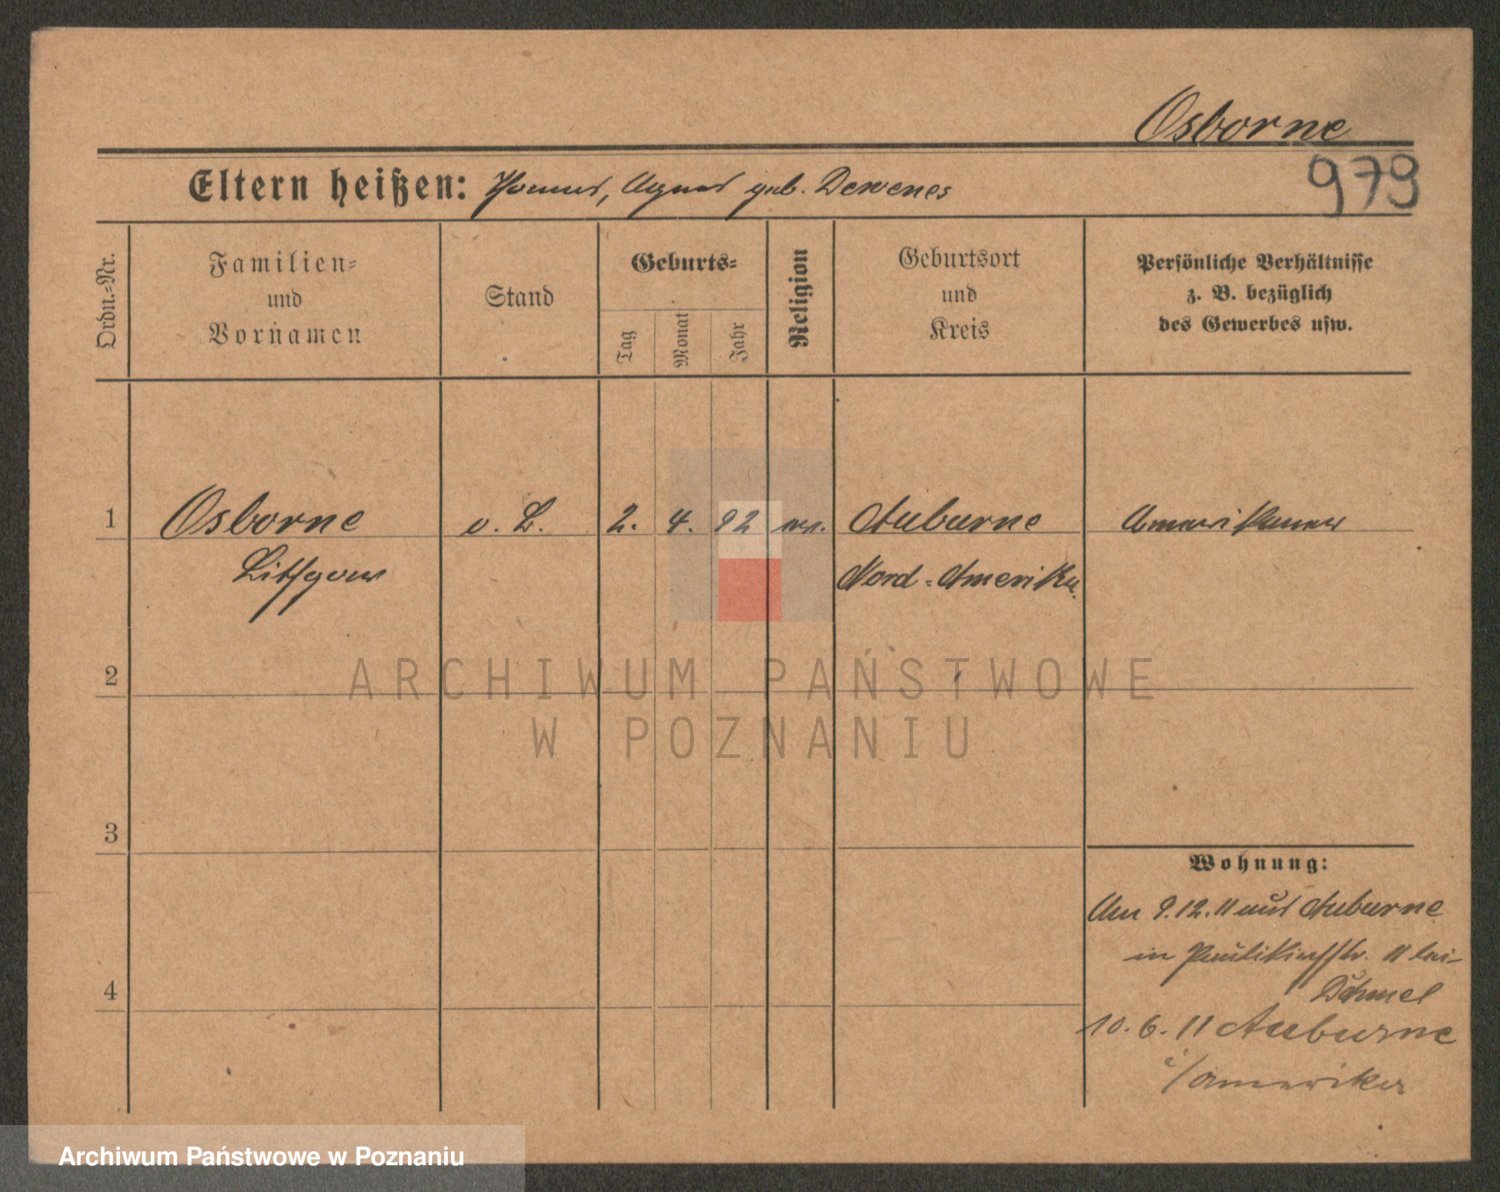 Osborne
979
Eltern heißen: Agnes geb. Devenes
Ordn.-Nr.
Familien-
und
Vornamen
Stand
Geburts-
Tag
Monat
Jahr
Religion
Geburtsort
und
Kreis
Persönliche Verhältnisse
z. B. bezüglich
des Gewerbes usw.
1 Osborne o. L. 2. 4. 92 Auburne Amerikaner
Lithgow Nord-Amerika
2
3
4
Wohnung:
Am 9.12.11 aus Auburne
in Paulikirchstr. 11 bei
Dehmel
10. 6. 11 Auburne
i/Amerika
ARCHIWUM PAŃSTWOWE
W POZNANIU
Archiwum Państwowe w Poznaniu